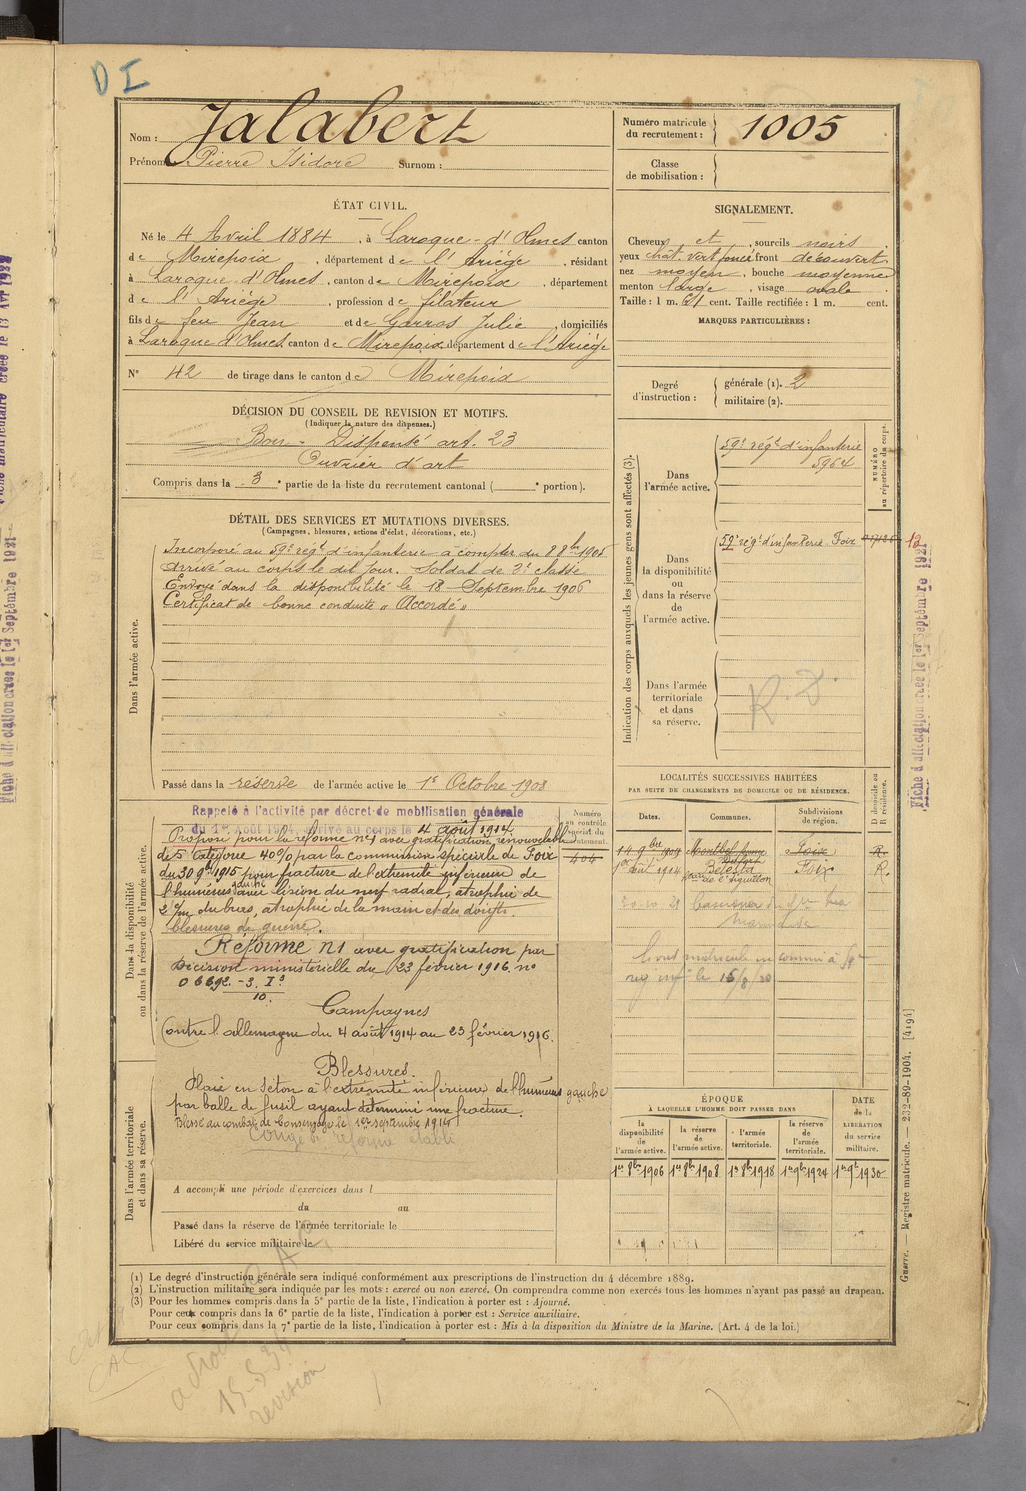 D I
Nom : Jalabert
Prénoms : Pierre Isidore Surnom :
Numéro matricule du recrutement : 1005
Classe de mobilisation :
ÉTAT CIVIL.
Né le 4 Avril 1884, à Laroque-d'Olmes canton
de Mirepoix, département de l'Ariège, résidant
à Laroque d'Olmes, canton de Mirepoix, département
de l'Ariège, profession de filateur
fils de feu Jean et de Garros Julie, domiciliés
à Laroque d'Olmes, canton de Mirepoix, département de l'Ariège
N° 42 de tirage dans le canton de Mirepoix
SIGNALEMENT.
Cheveux et, sourcils noirs
yeux chât. vert foncé front découvert
nez moyen, bouche moyenne
menton large, visage ovale
Taille : 1 m. 61 cent. Taille rectifiée : 1 m. cent.
MARQUES PARTICULIÈRES :
Degré d'instruction : générale (1). 2
militaire (2).
DÉCISION DU CONSEIL DE REVISION ET MOTIFS.
(Indiquer la nature des dispenses.)
Bon - Dispensé art. 23
Ouvrier d'art
Compris dans la 3e partie de la liste du recrutement cantonal ( e portion).
DÉTAIL DES SERVICES ET MUTATIONS DIVERSES.
(Campagnes, blessures, actions d'éclat, décorations, etc.)
Dans l'armée active.
Incorporé au 59e régt d'infanterie à compter du 8 8bre 1905
Arrivé au corps le dit jour. Soldat de 2e classe
Envoyé dans la disponibilité le 18 Septembre 1906
Certificat de bonne conduite "Accordé"
Passé dans la réserve de l'armée active le 1er Octobre 1908
Indication des corps auxquels les jeunes gens sont affectés (3).
NUMÉRO au répertoire du corps.
Dans l'armée active.
59e régt d'infanterie
5964
Dans la disponibilité ou dans la réserve de l'armée active.
59e régt d'infanterie Foix
12
Dans l'armée territoriale et dans sa réserve.
Dans la disponibilité ou dans la réserve de l'armée active.
Rappelé à l'activité par décret de mobilisation générale
du 1er Août 1914, arrivé au corps le 4 août 1914
Proposé pour la réforme n°1 avec gratification renouvelable
de 5e Catégorie 40% par la commission spéciale de Foix
du 30 9bre 1915 pour fracture de l'extrémité inférieure de
l'humérus avec lésion du nerf radial, atrophie de
2 c/m du bras, atrophie de la main et des doigts
blessures de guerre.
Réforme n1 avec gratification par
décision ministérielle du 23 février 1916 no
06692 - 3. I3
10.
Campagnes
Contre l'allemagne du 4 août 1914 au 23 février 1916.
Blessures.
Plaie en Séton à l'extrémité inférieure de l'humérus gauche
par balle de fusil ayant déterminé une fracture.
Blessé au combat de Consenvoye le 1er septembre 1914
Congé de réforme établi
Numéro au contrôle spécial du recrutement.
404
LOCALITÉS SUCCESSIVES HABITÉES
PAR SUITE DE CHANGEMENTS DE DOMICILE OU DE RÉSIDENCE.
Dates. Communes. Subdivisions de région. D domicile ou R résidence.
14 9bre 1909 Foix R.
1914 Bélesta Foix R.
rue de l'Aiguillon
Livret matricule
le 16/8/20
R. D.
Dans l'armée territoriale et dans sa réserve.
A accompli une période d'exercices dans l
du au
Passé dans la réserve de l'armée territoriale le
Libéré du service militaire le
ÉPOQUE
À LAQUELLE L'HOMME DOIT PASSER DANS
la disponibilité de l'armée active. la réserve de l'armée active. l'armée territoriale. la réserve de l'armée territoriale. DATE de la LIBÉRATION du service militaire.
1er 8bre 1906 1er 8bre 1908 1er 8bre 1918 1er 9bre 1924 1er 9bre 1930
(1) Le degré d'instruction générale sera indiqué conformément aux prescriptions de l'instruction du 4 décembre 1889.
(2) L'instruction militaire sera indiquée par les mots : exercé ou non exercé. On comprendra comme non exercés tous les hommes n'ayant pas passé au drapeau.
(3) Pour les hommes compris dans la 5e partie de la liste, l'indication à porter est : Ajourné.
Pour ceux compris dans la 6e partie de la liste, l'indication à porter est : Service auxiliaire.
Pour ceux compris dans la 7e partie de la liste, l'indication à porter est : Mis à la disposition du Ministre de la Marine. (Art. 4 de la loi.)
Guerre. — Registre matricule. — 232-89-1904. [4194]
Fiche d'affectation créée le 1er Septembre 1921
Fiche matriculaire créée le 13 Avr 1922
Fiche d'affectation créée le 1er Septembre 1921
révision